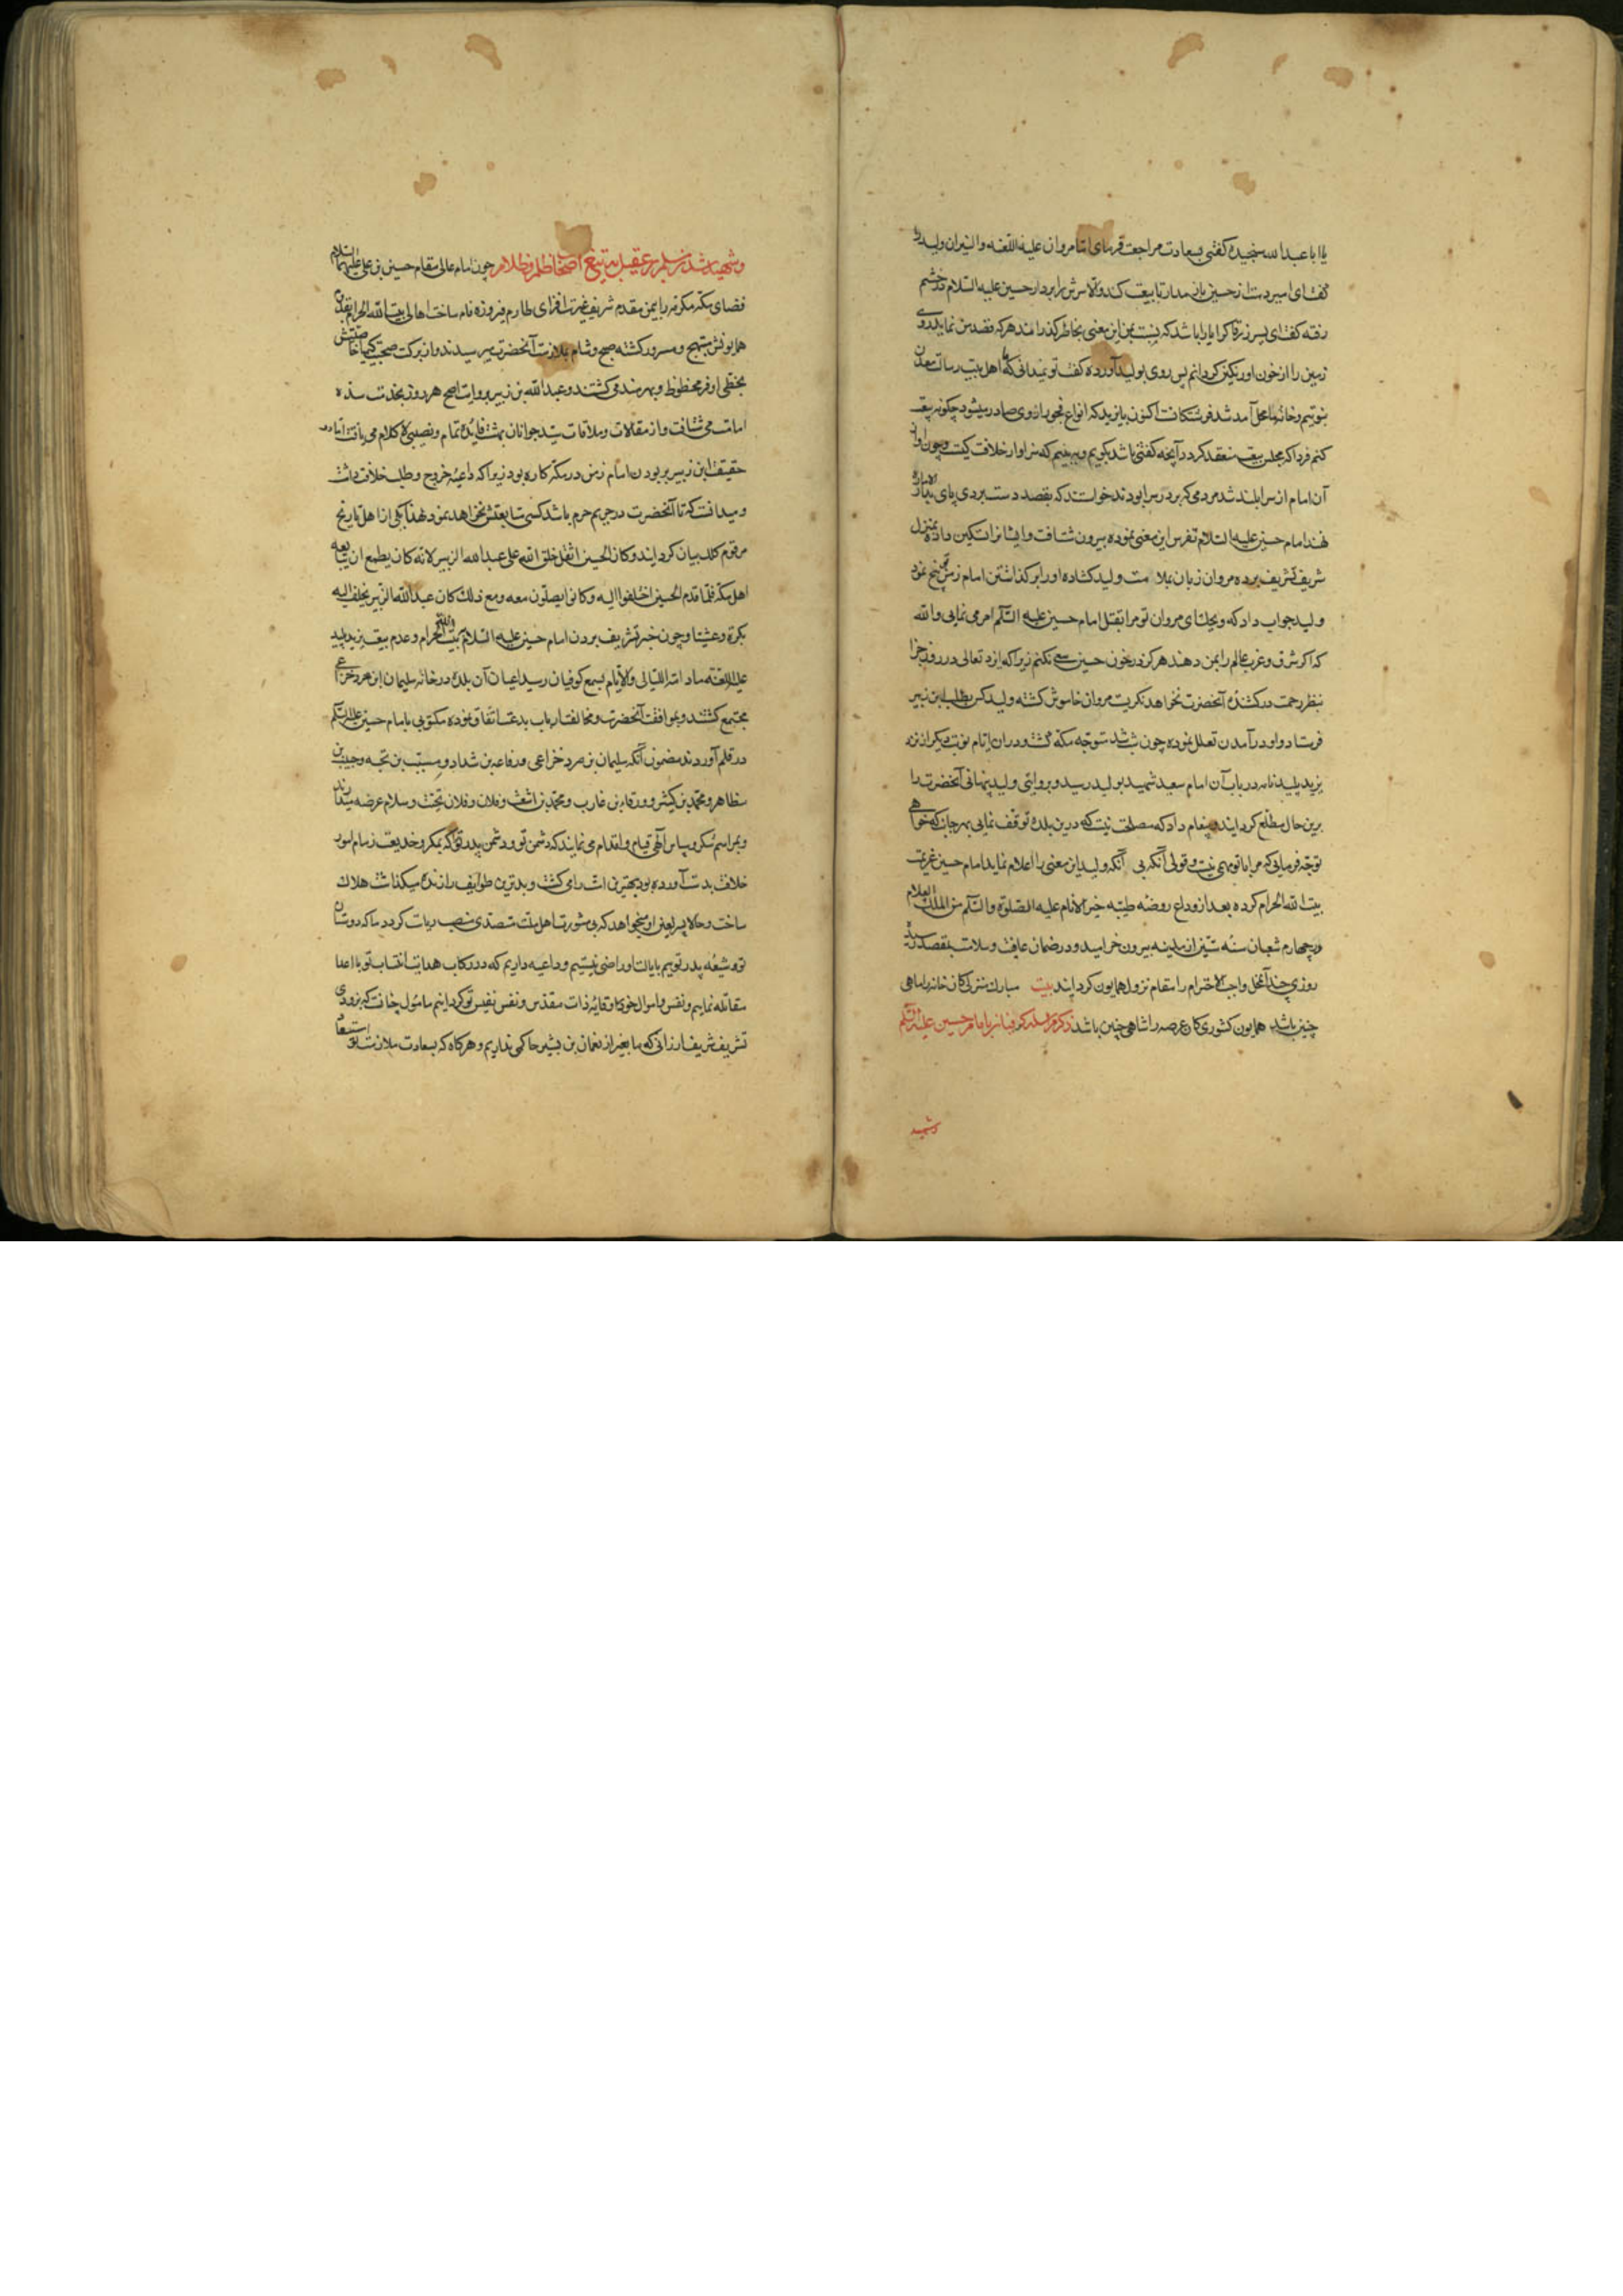 یا ابا عبد الله سنجیده گفتی بسعادت مراجعت فرمای اما مروان علیه اللعنه والنیران ولید را
گفت ای امیر دست از حسین باز مدار تا بیعت کند والا سرش را بردار حسین علیه السلام در خشم
رفته گفت ای پسر زرقا کرا یارا باشد که نسبت بمن این معنی بخاطر گذراند هر که قصد من نماید روی
زمین را از خون او رنگین گردانم پس روی بولید آورده گفت تو نمیدانی که ما اهل بیت رسالت معدن
نبوتیم و خانه ما محل آمد شد فرشتگانست اکنون با یزید که انواع فجور از وی صادر میشود چگونه بیعت
کنم فردا که مجلس بیعت منعقد گردد آنچه گفتنی باشد بگویم و ببینیم که سزاوار خلافت کیست و چون آواز
آن امام از سرا بلند شد مردمی که بر در سرا بودند خواستند که بقصد دست بردی پای
نهند امام حسین علیه السلام تفرس این معنی نموده بیرون شتافت و ایشانرا تسکین داده بمنزل
شریف تشریف برده مروان زبان بملامت ولید گشاده او را بر گذاشتن امام زمن توبیخ نمود
ولید جواب داد که ویحک ای مروان تو مرا بقتل امام حسین علیه السلم امر می نمایی والله
که اگر شرق و غرب عالم را بمن دهند هرگز در خون حسین سعی نکنم زیرا که ایزد تعالی در روز جزا
بنظر رحمت در کشنده آنحضرت نخواهد نگریست مروان خاموش گشته ولید کس بطلب ابن زبیر
فرستاد و او در آمدن تعلل نموده چون شب شد متوجه مکه گشت و در ان ایام نوبت دیگر از نزد
یزید پلید نامه در باب آن امام سعید شهید بولید رسید و بروایتی ولید پنهانی آنحضرت را
برین حال مطلع گردانید و پیغام داد که مصلحت نیست که درین بلده توقف نمایی بهر جا که خواهی
توجه فرمایی که مرا با تو مهمی نیست و قولی آنکه بی آنکه ولید این معنی را اعلام نماید امام حسین عزیمت
بیت الله الحرام کرده بعد از وداع روضه طیبه خیر الانام علیه الصلوة والسلم من الملک العلام
در چهارم شعبان سنه ستین از مدینه بیرون خرامید و در ضمان عافیت و سلامت بمقصد رسید
روزی چند آن محل واجب الاحترام را مقام نزول همایون گردانید بیت مبارک منزلی کان خانه را ماهی
چنین باشد همایون کشوری کان عرصه را شاهی چنین باشد ذکر مراسله کوفیان با امام حسین علیه السلم
وشهید
وشهید شدن مسلم بن عقیل به تیغ اصحاب ظلم و ظلام چون امام عالی مقام حسین بن علی علیهما السلام
فضای مکه مکرمه را بیمن مقدم شریف غیرت افزای طارم فیروزه فام ساخت اهالی بیت الله الحرام بقدوم
همایونش مبتهج و مسرور گشته صبح و شام بملازمت آنحضرت میرسیدند و از برکت صحبت کیمیا خاصیتش
بحظی اوفر محظوظ و بهره مند می گشتند و عبد الله بن زبیر بروایت اصح هر روز بخدمت سده
امامت می شتافت و از مقالات و ملاقات سید جوانان بهشت فایده تمام و نصیبی لا کلام می یافت اما در
حقیقت ابن زبیر بر بودن امام زمن در مکه کاره بود زیرا که داعیه خروج و طلب خلافت داشت
و میدانست که تا آنحضرت در حریم حرم باشد کسی متابعتش نخواهد نمود لهذا یکی از اهل تاریخ
مرقوم کلک بیان گردانید و کان الحسین اثقل خلق الله علی عبد الله الزبیر لانه کان یطمع ان یتابعه
اهل مکه فلما قدم الحسین اختلفوا الیه و کانوا یصلون معه و مع ذلک کان عبد الله الزبیر یختلف الیه
بکرة و عشیا و چون خبر تشریف بردن امام حسین علیه السلام ببیت الله الحرام و عدم بیعت یزید پلید
علیه اللعنه مادامت اللیالی والایام بسمع کوفیان رسید اعیان آن بلده در خانه سلیمان ابن صرد خزاعی
مجتمع گشتند و بموافقت آنحضرت و مخالفت ارباب بدعت اتفاق نموده مکتوبی بامام حسین علیه السلم
در قلم آوردند مضمون آنکه سلیمان بن صرد خزاعی و رفاعه بن شداد و مسیب بن نجبه و حبیب بن
مظاهر و محمد بن کثیر و ورقاء بن عازب و محمد بن اشعث و فلان و فلان تحیت و سلام عرضه میدارند
و بمراسم شکر و سپاس آلهی قیام و اقدام می نمایند که دشمن تو و دشمن پدر تو که بمکر و خدیعت زمام امور
خلافت بدست آورده بود بهترین امت را می کشت و بدترین طوایف را زنده میگذاشت هلاک
ساخت و حالا پسر لعین او میخواهد که بی مشورت اهل ملت متصدی منصب ریاست گردد ما که دوستان
تو و شیعه پدر توییم بایالت او راضی نیستیم و داعیه داریم که در رکاب هدایت انتساب تو با اعدا
مقاتله نماییم و نفس و اموال خود را وقایه ذات مقدس و نفس نفیس تو گردانیم مامول چنانست که بزودی
تشریف شریف ارزانی که ما بغیر از نعمان بن بشیر حاکمی نداریم و هرگاه که بسعادت ملازمت تو استسعاد